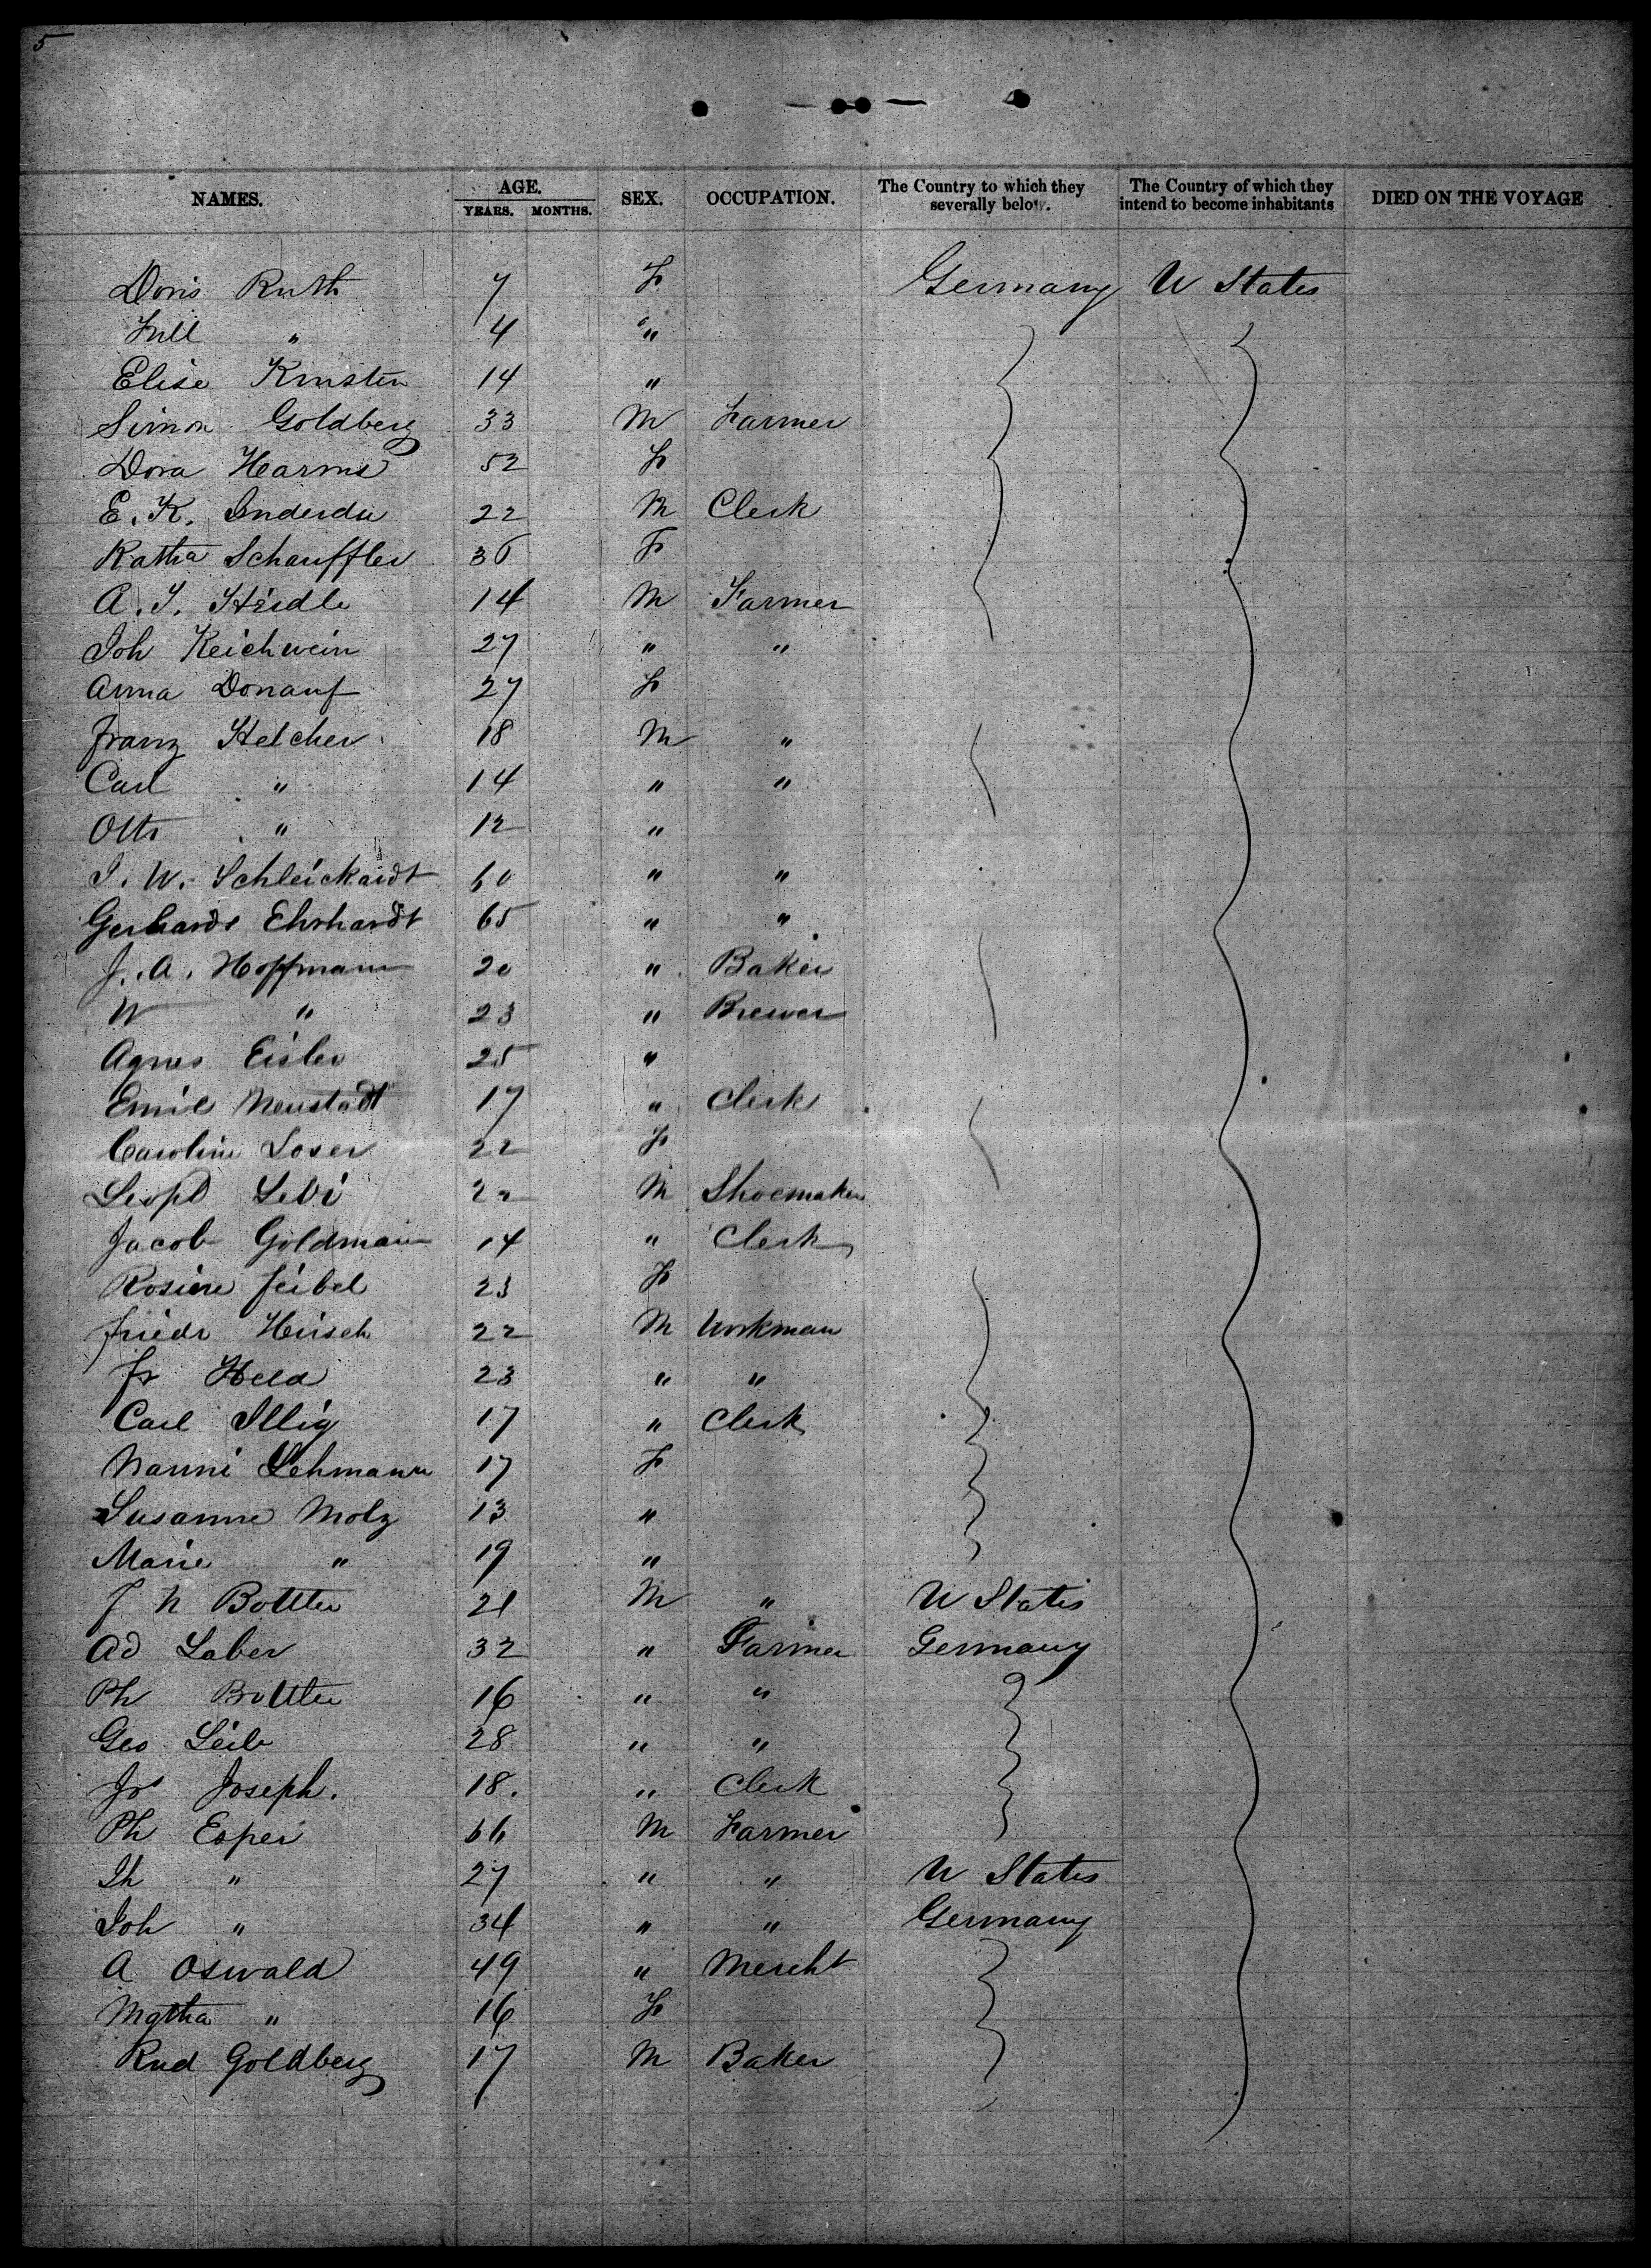 5
NAMES. AGE. SEX. OCCUPATION. The Country to which they severally belong. The Country of which they intend to become inhabitants DIED ON THE VOYAGE
YEARS. MONTHS.
Doris Ruth 7 F Germany U States
" 4 "
Elise 14 "
Simon Goldberg 33 M Farmer
Dora Hearms 52 F
E. K. 22 M Clerk
Katha Schauffler 36 F
A. J. Heidle 14 M Farmer
Joh Reichwein 27 " "
Anna Donauf 27 F
Franz Helcher 18 M "
Carl " 14 " "
Otto " 12 "
J. W. Schleickardt 60 " "
Gerhardt Ehrhardt 65 " "
J. A. Hoffmann 20 " Baker
W " 23 " Brewer
Agnes Eisler 25 "
Emil Neustadt 17 " Clerk
Caroline Loser 22 F
Leopd Levi 22 M Shoemaker
Jacob Goldmann 14 " Clerk
Rosine Feibel 23 F
Friedr Hirsch 22 M Workman
Fr Held 23 " "
Carl Illig 17 " Clerk
Nanni Lehmann 17 F
Susanne Molz 13 "
Marie " 19 "
J N Bottler 21 M " U States
Ad Laber 32 " Farmer Germany
Ph Bottler 16 " "
Geo Leib 28 " "
Jos Joseph. 18. " Clerk
Ph Esper 66 M Farmer
" 27 " " U States
Joh " 34 " " Germany
A Oswald 49 " Mercht
Mgtha " 16 F
Rud Goldberg 17 M Baker